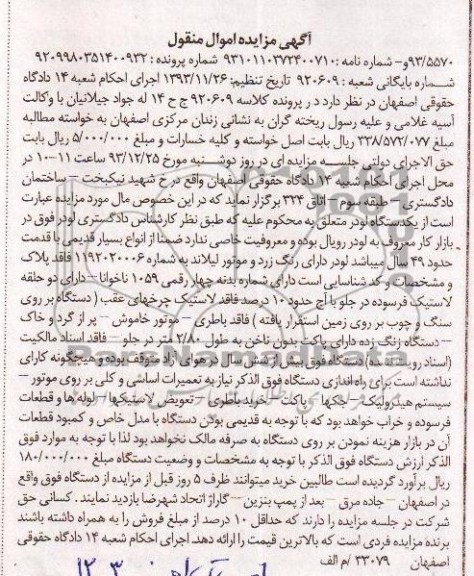 آگهی مزایده اموال منقول
۹۳/۵۵۷۰و- شماره نامه: ۹۳۱۰۱۱۰۳۷۲۴۰۰۷۱۰ شماره پرونده: ۹۲۰۹۹۸۰۳۵۱۴۰۰۹۳۲
شماره بایگانی شعبه: ۹۲۰۶۰۹ تاریخ تنظیم: ۱۳۹۳/۱۱/۲۶ اجرای احکام شعبه ۱۴ دادگاه
حقوقی اصفهان در نظر دارد در پرونده کلاسه ۹۲۰۶۰۹ ج ح ۱۴ له جواد جیلانیان با وکالت
آسیه غلامی و علیه رسول ریخته گران به نشانی زندان مرکزی اصفهان به خواسته مطالبه
مبلغ ۳۳۸/۵۷۲/۰۷۷ ریال بابت اصل خواسته و کلیه خسارات و مبلغ ۵/۰۰۰/۰۰۰ ریال بابت
حق الاجرای دولتی جلسه مزایده ای در روز دوشنبه مورخ ۹۳/۱۲/۲۵ ساعت ۱۱-۱۰ در
محل اجرای احکام شعبه ۱۴ دادگاه حقوقی اصفهان واقع در خ شهید نیکبخت – ساختمان
دادگستری – طبقه سوم – اتاق ۳۲۴ برگزار نماید که در این خصوص مال مورد مزایده عبارت
است از یکدستگاه لودر متعلق به محکوم علیه که طبق نظر کارشناس دادگستری لودر فوق در
بازار کار معروف به لودر رویال بوده و معروفیت خاصی ندارد ضمنا از انواع بسیار قدیمی با قدمت
حدود ۴۹ سال میباشد لودر دارای رنگ زرد و موتور لیلاند به شماره ۱۱۹۲۰۲۰۰۰۶ فاقد پلاک
و مشخصات و کد شناسایی است دارای شماره بدنه چهار رقمی ۱۰۵۹ ناخوانا – دارای دو حلقه
لاستیک فرسوده در جلو با آج حدود ۱۰ درصد فاقد لاستیک چرخهای عقب (دستگاه بر روی
سنگ و چوب بر روی زمین استقرار یافته) فاقد باطری – موتور خاموش – پر از گرد و خاک
– دستگاه زنگ زده دارای پاکت بدون ناخن به طول ۲/۸۰ متر در جلو – فاقد اسناد مالکیت
(اسناد رویت نشده) دستگاه فوق بیش از شش سال در هوای آزاد متوقف بوده و هیچگونه کارای
نداشته است برای راه اندازی دستگاه فوق الذکر نیاز به تعمیرات اساسی و کلی بر روی موتور –
سیستم هیدرولیک – جکها – پاکت – خرید باطری – تعویض لاستیکها – لوله ها و قطعات
فرسوده و خراب خواهد بود که با توجه به قدیمی بودن دستگاه با مدل خاص و کمبود قطعات
آن در بازار هزینه نمودن بر روی دستگاه به صرفه مالک نخواهد بود لذا با توجه به موارد فوق
الذکر ارزش دستگاه فوق الذکر با توجه به مشخصات و وضعیت دستگاه مبلغ ۱۸۰/۰۰۰/۰۰۰
ریال برآورد گردیده است طالبین خرید میتوانند ظرف ۵ روز قبل از مزایده از دستگاه فوق واقع
در اصفهان – جاده مرق – بعد از پمپ بنزین – گاراژ اتحاد شهرضا بازدید نمایند. کسانی حق
شرکت در جلسه مزایده را دارند که حداقل ۱۰ درصد از مبلغ فروش را به همراه داشته باشند
برنده مزایده فردی است که بالاترین قیمت را ارائه دهد. اجرای احکام شعبه ۱۴ دادگاه حقوقی
اصفهان ۳۳۰۷۹ /م الف